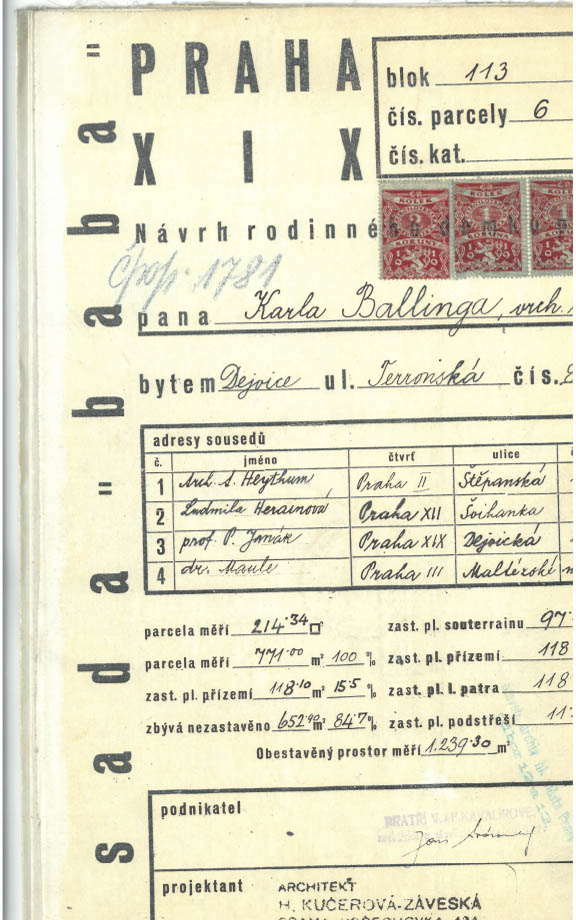 PRAHA
XIX
blok 113
čís. parcely 6
čís. kat.
Návrh rodinné
čpop. 1781
pana Karla Ballinga, vrch.
bytem Dejvice ul. Terronská čís.
adresy sousedů
č. jméno čtvrť ulice
1 Arch. A. Heythum Praha II Štěpanská
2 Ludmila Herainová Praha XII Švihanka
3 prof. P. Janák Praha XIX Dejvická
4 dr. Maule Praha III Maltézské
parcela měří 214·34 □°
parcela měří 771·00 m² 100 %
zast. pl. přízemí 118·10 m² 15·5 %
zbývá nezastavěno 652·90 m² 84·7 %
zast. pl. souterrainu 97·
zast. pl. přízemí 118
zast. pl. I. patra 118
zast. pl. podstřeší 11
Obestavěný prostor měří 1.239·30 m³
podnikatel
BRATŘI V. a F. KAVALÍROVÉ
projektant
ARCHITEKT
H. KUČEROVÁ-ZÁVESKÁ
PRAHA-
sada "baba"
KOLEK
KORUNY
KOLEK
1
KOLEK